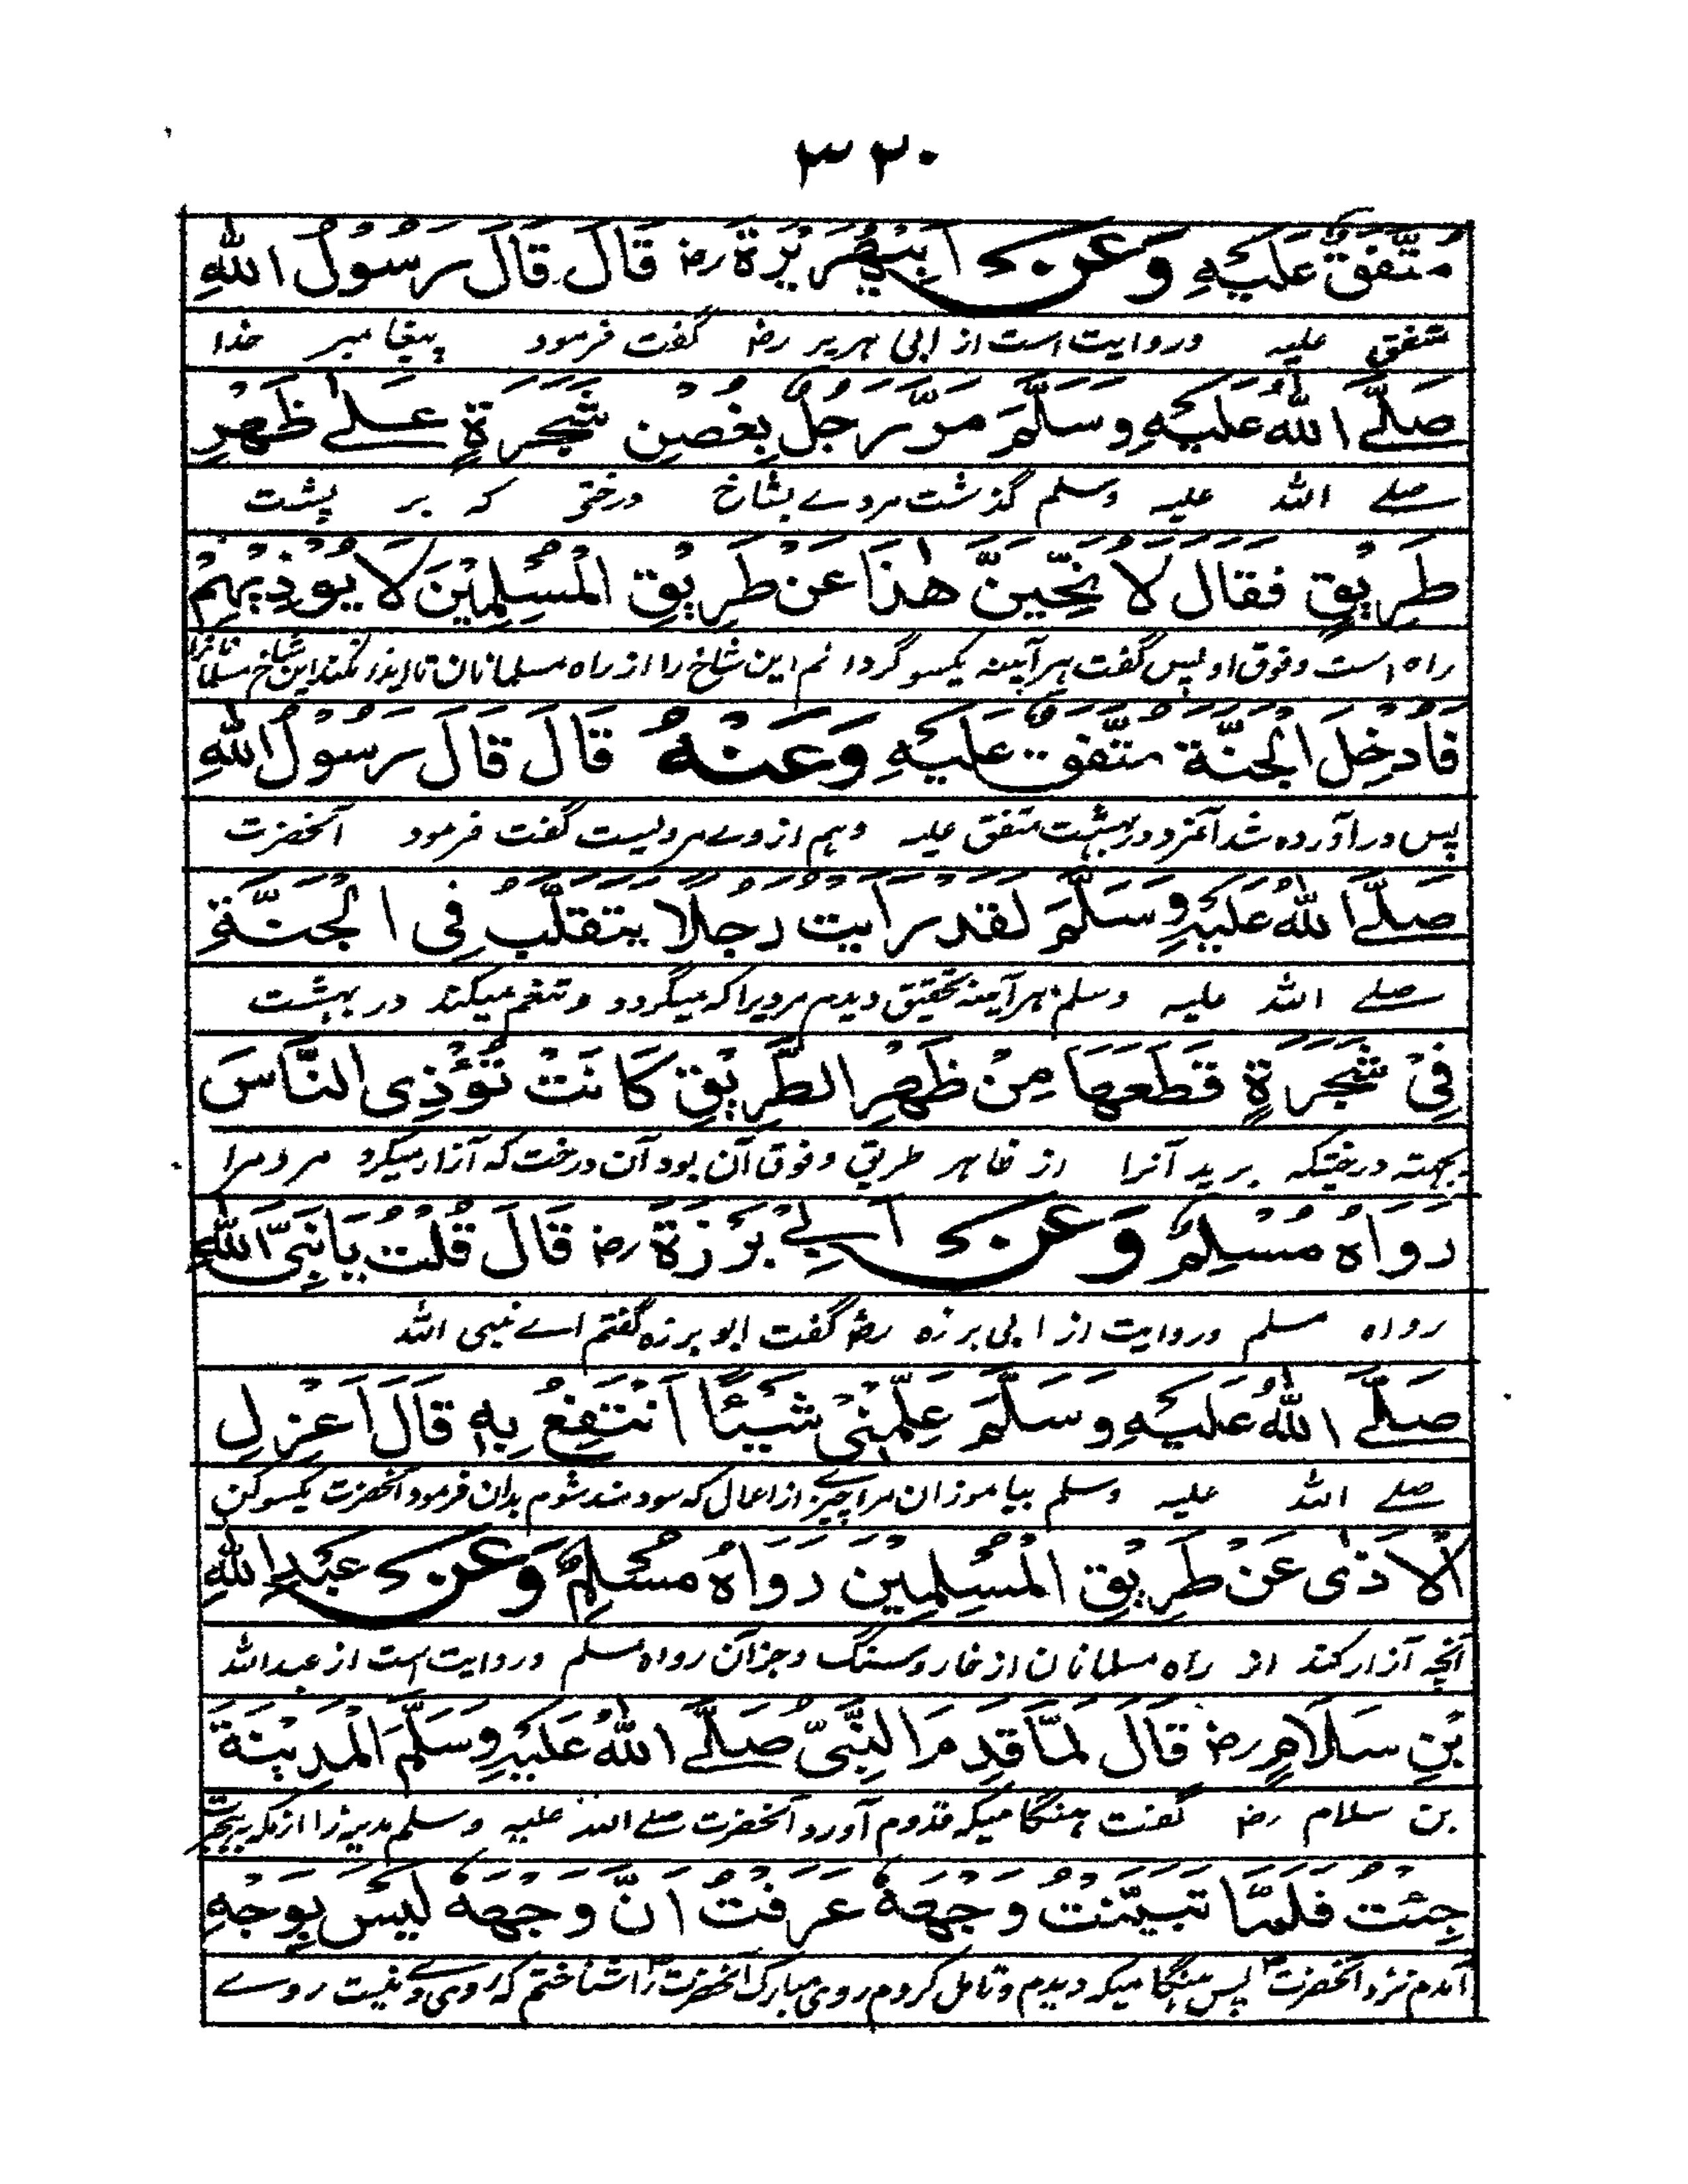 ۳۲۰
مُتَّفَقٌ عَلَيْهِ وَعَنْ اَبِيْهُرَيْرَةَ رض قَالَ قَالَ رَسُوْلُ اللّٰهِ
متفق علیه وروایت است از ابی هریر رض گفت فرمود پیغامبر خدا
صَلَّے اللّٰهُ عَلَيْهِ وَسَلَّمَ مَرَّ رَجُلٌ بِغُصْنِ شَجَرَةٍ عَلٰے ظَهْرِ
صلے الله علیه وسلم گذشت مردے بشاخ درختی که بر پشت
طَرِيْقٍ فَقَالَ لَاُنَحِّيَنَّ هٰذَا عَنْ طَرِيْقِ الْمُسْلِمِيْنَ لَا يُوْذِيْهِمْ
راه است وفوق او پس گفت هر آیینه یکسو گردانم این شاخ را از راه مسلمانان تا ایذا نکند این شاخ مسلمانانرا
فَاُدْخِلَ الْجَنَّةَ مُتَّفَقٌ عَلَيْهِ وَعَنْهُ قَالَ قَالَ رَسُوْلُ اللّٰهِ
پس درآورده شد آنمرد در بهشت متفق علیه وهم از وے مرویست گفت فرمود آنحضرت
صَلَّے اللّٰهُ عَلَيْهِ وَسَلَّمَ لَقَدْ رَاَيْتُ رَجُلًا يَتَقَلَّبُ فِى الْجَنَّةِ
صلے الله علیه وسلم هر آیینه بتحقیق دیدم مردیرا که میگردد و تنعم میکند در بهشت
فِيْ شَجَرَةٍ قَطَعَهَا مِنْ ظَهْرِ الطَّرِيْقِ كَانَتْ تُؤْذِى النَّاسَ
بجهته درختیکه برید آنرا از ظاهر طریق وفوق آن بود آن درخت که آزار میکرد مردمرا
رَوَاهُ مُسْلِمٌ وَعَنْ اَبِيْ بَرْزَةَ رض قَالَ قُلْتُ يَا نَبِىَّ اللّٰهِ
رواه مسلم وروایت از ابی برزه رض گفت ابو برزه گفتم اے نبی الله
صَلَّے اللّٰهُ عَلَيْهِ وَسَلَّمَ عَلِّمْنِيْ شَيْئًا اَنْتَفِعُ بِهٖ قَالَ اَعْزِلِ
صلے الله علیه وسلم بیاموزان مرا چیزے از اعمال که سودمند شوم بدان فرمود آنحضرت یکسو کن
الْاَذٰى عَنْ طَرِيْقِ الْمُسْلِمِيْنَ رَوَاهُ مُسْلِمٌ وَعَنْ عَبْدِ اللّٰهِ
آنچه آزار کند از راه مسلمانان از خار و سنگ و جز آن رواه مسلم وروایت است از عبدالله
بْنِ سَلَامٍ رض قَالَ لَمَّا قَدِمَ النَّبِىُّ صَلَّے اللّٰهُ عَلَيْهِ وَسَلَّمَ الْمَدِيْنَةَ
بن سلام رض گفت هنگامیکه قدوم آورد آنحضرت صلے الله علیه وسلم مدینه را از مکه بهجرت
جِئْتُ فَلَمَّا تَبَيَّنْتُ وَجْهَهٗ عَرَفْتُ اَنَّ وَجْهَهٗ لَيْسَ بِوَجْهِ
آمدم نزد آنحضرت پس هنگامیکه دیدم وتامل کردم روی مبارک آنحضرت را شناختم که روی وے نیست روے